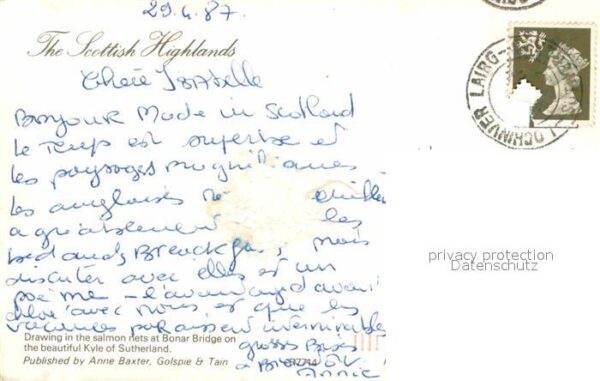 29.4.87.
The Scottish Highlands
Chère Isabelle
Bonjour Made in Scotland
Le Temps est superbe et
les paysages magnifiques
les anglaises
agréablement les
bed and Breackfas, mais
discuter avec elles est un
poème - l'avantage d'avoir
avec nous, est que les
vacances paraissent interminables
Drawing in the salmon nets at Bonar Bridge on
the beautiful Kyle of Sutherland.
grosses Bises
Published by Anne Baxter, Golspie & Tain
à
Annie
LAIRG-LOCHINVER
privacy protection
Datenschutz